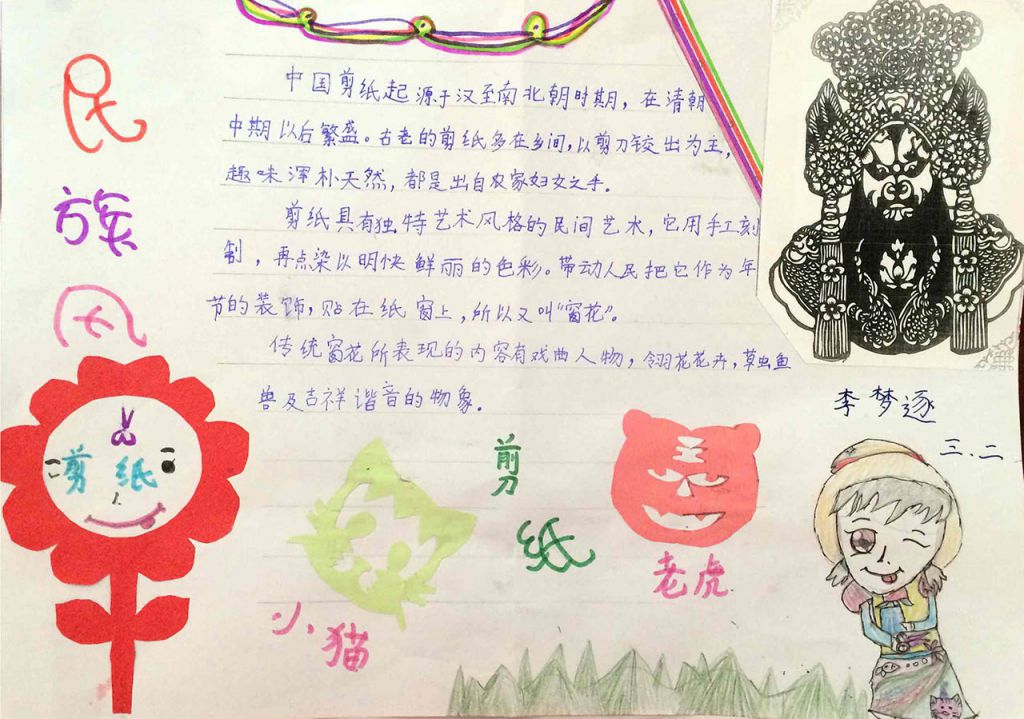 民
族
风
中国剪纸起源于汉至南北朝时期，在清朝
中期以后繁盛。古老的剪纸多在乡间，以剪刀铰出为主，
趣味浑朴天然，都是出自农家妇女之手。
剪纸具有独特艺术风格的民间艺术，它用手工刻
制，再点染以明快鲜丽的色彩。带动人民把它作为年
节的装饰，贴在纸窗上，所以又叫“窗花”。
传统窗花所表现的内容有戏曲人物，翎花花卉，草虫鱼
兽及吉祥谐音的物象。
李梦逐
三.二
剪纸
剪
纸
小猫
老虎